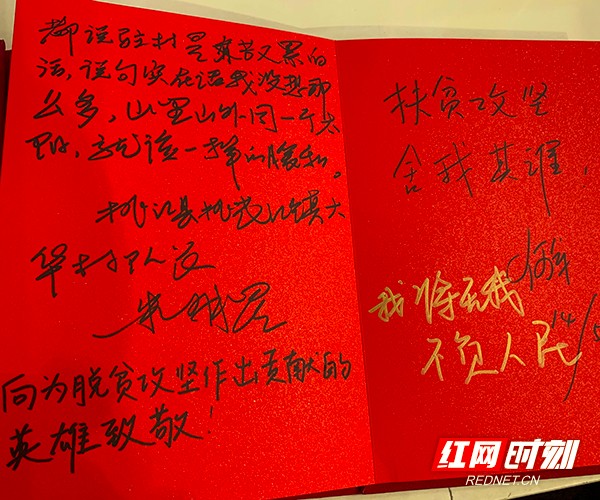 都说驻村是辛苦又累的
活,说句实在话我没想那
么多,山里山外同一个太
阳,就该一样的暖和。
桃江县桃花江镇大
华村
向为脱贫攻坚作出贡献的
英雄致敬!
扶贫攻坚
舍我其谁!
我将无我
不负人民
14/5
红网时刻
REDNET.CN